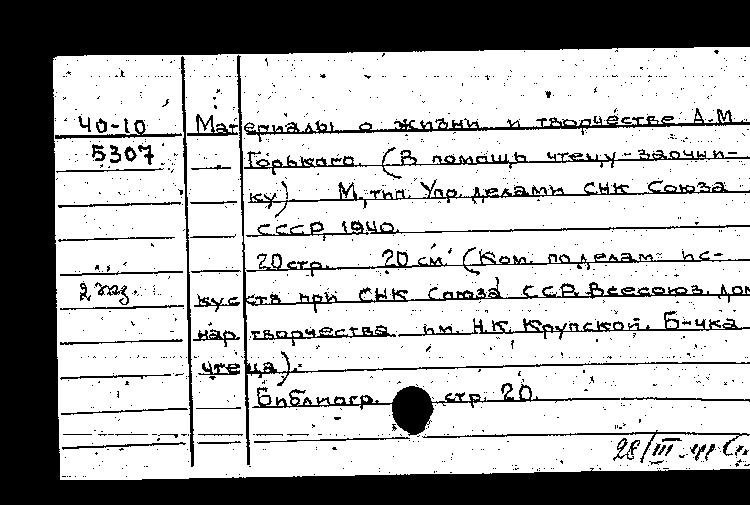 40-10 Материалы о жизни и творчестве А.М.
5307 Горького. (В помощь чтецу-заочни-
ку). М, тип. Упр. делами СНК Союза
ССР, 1940.
20 стр. 20 см. (Ком. по делам ис-
2 экз. кусств при СНК Союза ССР. Всесоюз. дом
нар. творчества им. Н.К. Крупской. Б-чка
чтеца).
Библиогр. стр. 20.
28/III-41